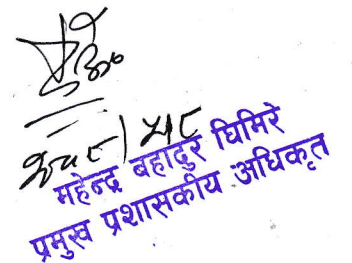 महेन्द्र बहादुर घिमिरे
प्रमुख प्रशासकीय अधिकृत